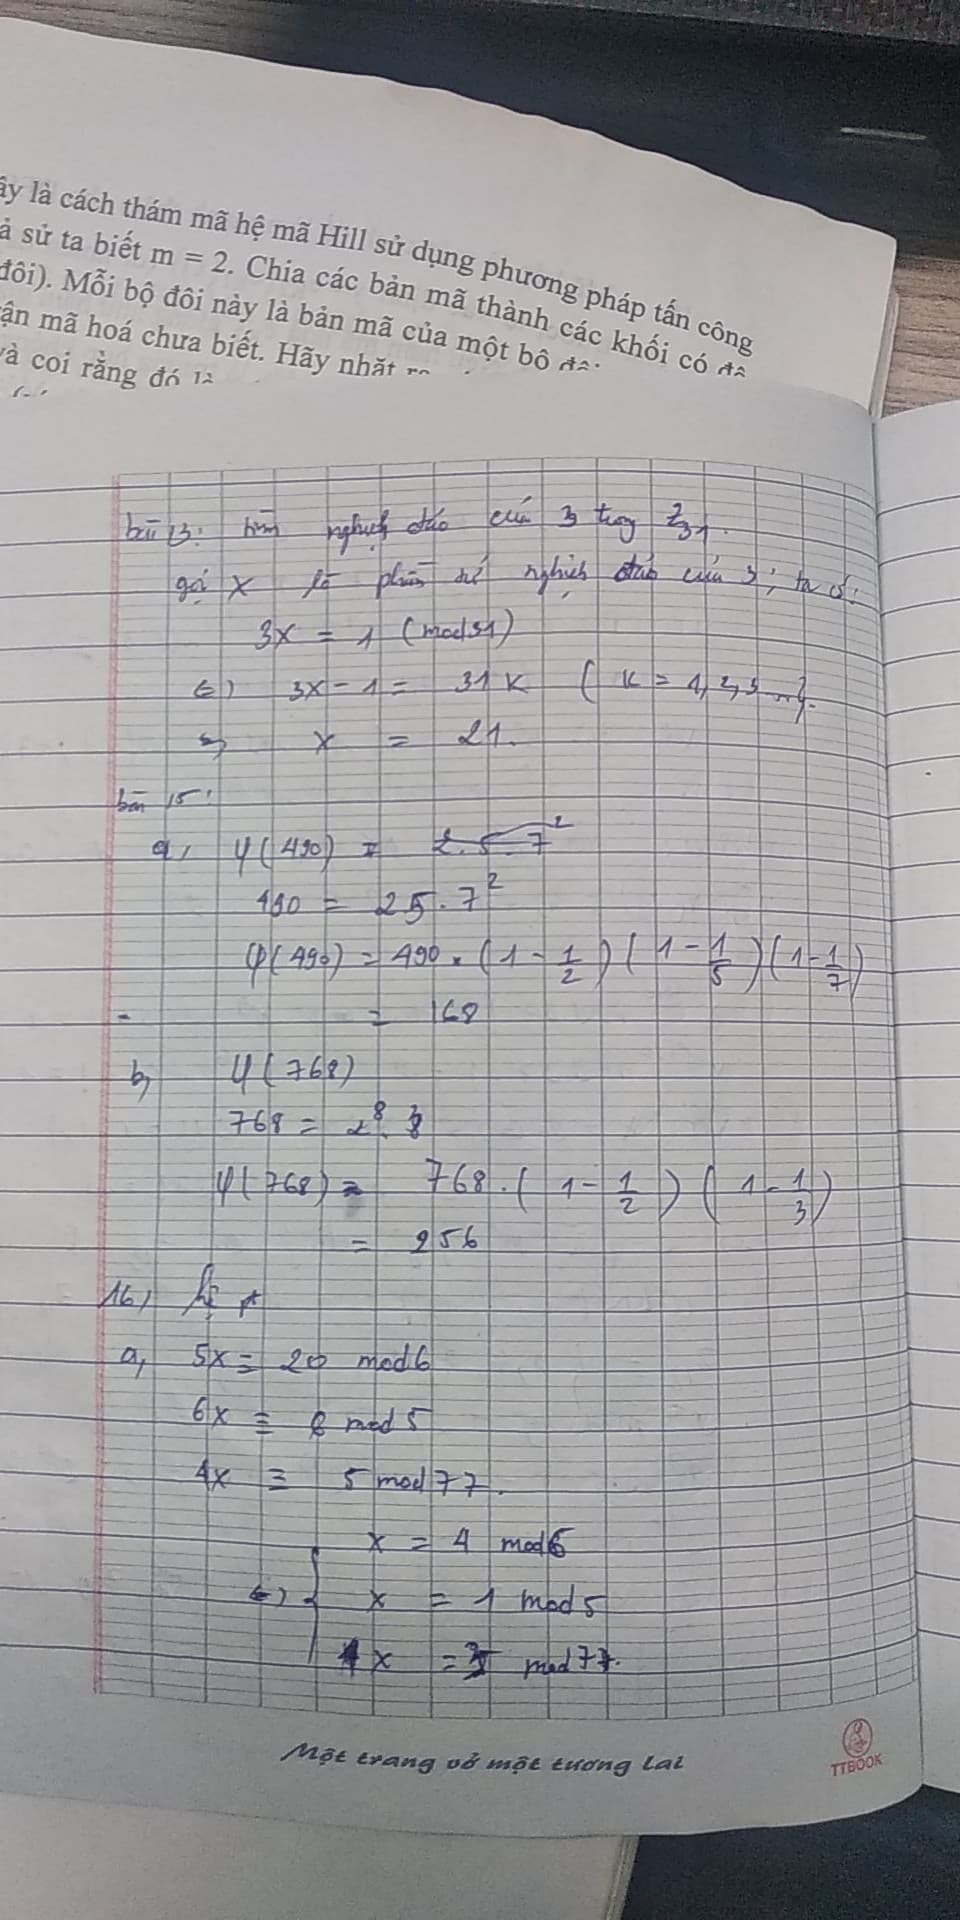 ây là cách thám mã hệ mã Hill sử dụng phương pháp tấn công
ả sử ta biết m = 2. Chia các bản mã thành các khối có
đôi). Mỗi bộ đôi này là bản mã của một bộ
ận mã hoá chưa biết. Hãy nhặt
và coi rằng đó là
bài 13: tìm nghịch đảo của 3 trong Z31.
gọi x là phần tử nghịch đảo của 3, ta có:
3x = 1 (mod 31)
<=> 3x - 1 = 31k (k = 1, 2, 3 ...).
=> x = 21.
bài 15:
a, φ(490) = 2.5.7²
490 = 2.5.7²
φ(490) = 490 . (1 - 1/2) (1 - 1/5) (1 - 1/7)
= 168
b, φ(768)
768 = 2⁸.3
φ(768) = 768 . (1 - 1/2) (1 - 1/3)
= 256
16, hệ pt
a, 5x ≡ 20 mod 6
6x ≡ 6 mod 5
4x ≡ 5 mod 77.
x = 4 mod 6
<=> { x = 1 mod 5
x = mod 77.
Một trang vở một tương lai
TTBOOK